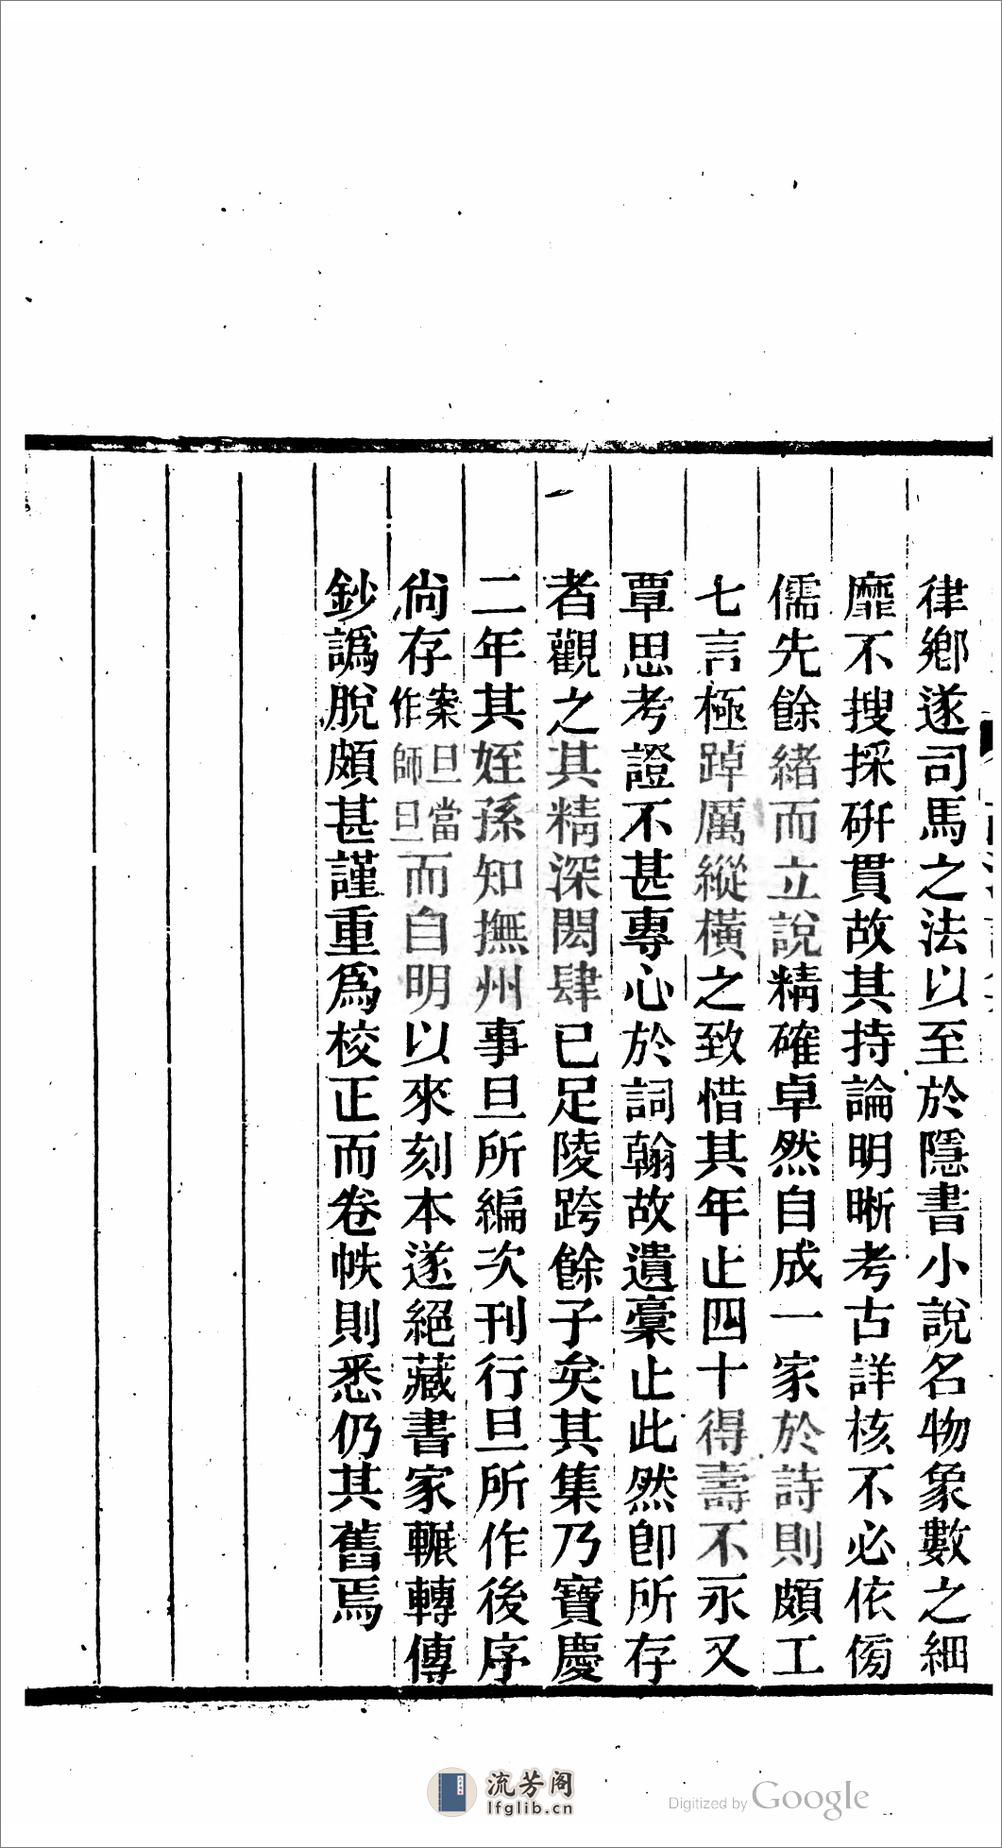 律鄉遂司馬之法以至於隱書小說名物象數之細
靡不搜採硏貫故其持論明晰考古詳核不必依傍
儒先餘緒而立說精確卓然自成一家於詩則頗工
七言極踔厲縱橫之致惜其年止四十得壽不永又
覃思考證不甚專心於詞翰故遺稾止此然卽所存
者觀之其精深閎肆已足陵跨餘子矣其集乃寶慶
二年其姪孫知撫州事旦所編次刊行旦所作後序
尙存案旦當作師旦而自明以來刻本遂絕藏書家輾轉傳
鈔譌脫頗甚謹重爲校正而卷帙則悉仍其舊焉
流芳阁
lfglib.cn
Digitized by Google